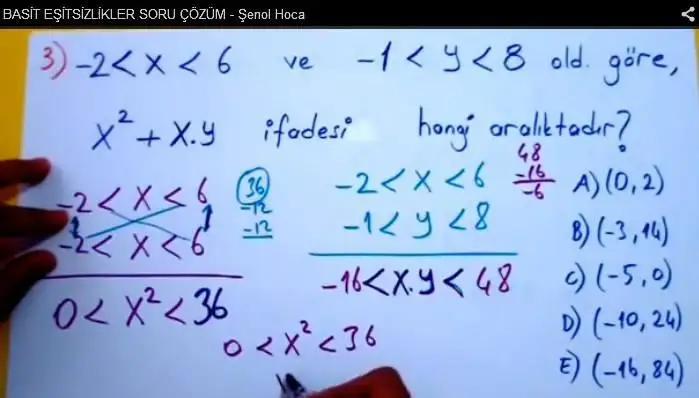 BASİT EŞİTSİZLİKLER SORU ÇÖZÜM - Şenol Hoca
3) -2 < x < 6 ve -1 < y < 8 old. göre,
x² + x.y ifadesi hangi aralıktadır?
-2 < x < 6
-2 < x < 6
0 < x² < 36
36
-12
-12
-2 < x < 6
-1 < y < 8
-16 < x.y < 48
48
-16
-6
0 < x² < 36
A) (0, 2)
B) (-3, 14)
C) (-5, 0)
D) (-10, 24)
E) (-16, 84)